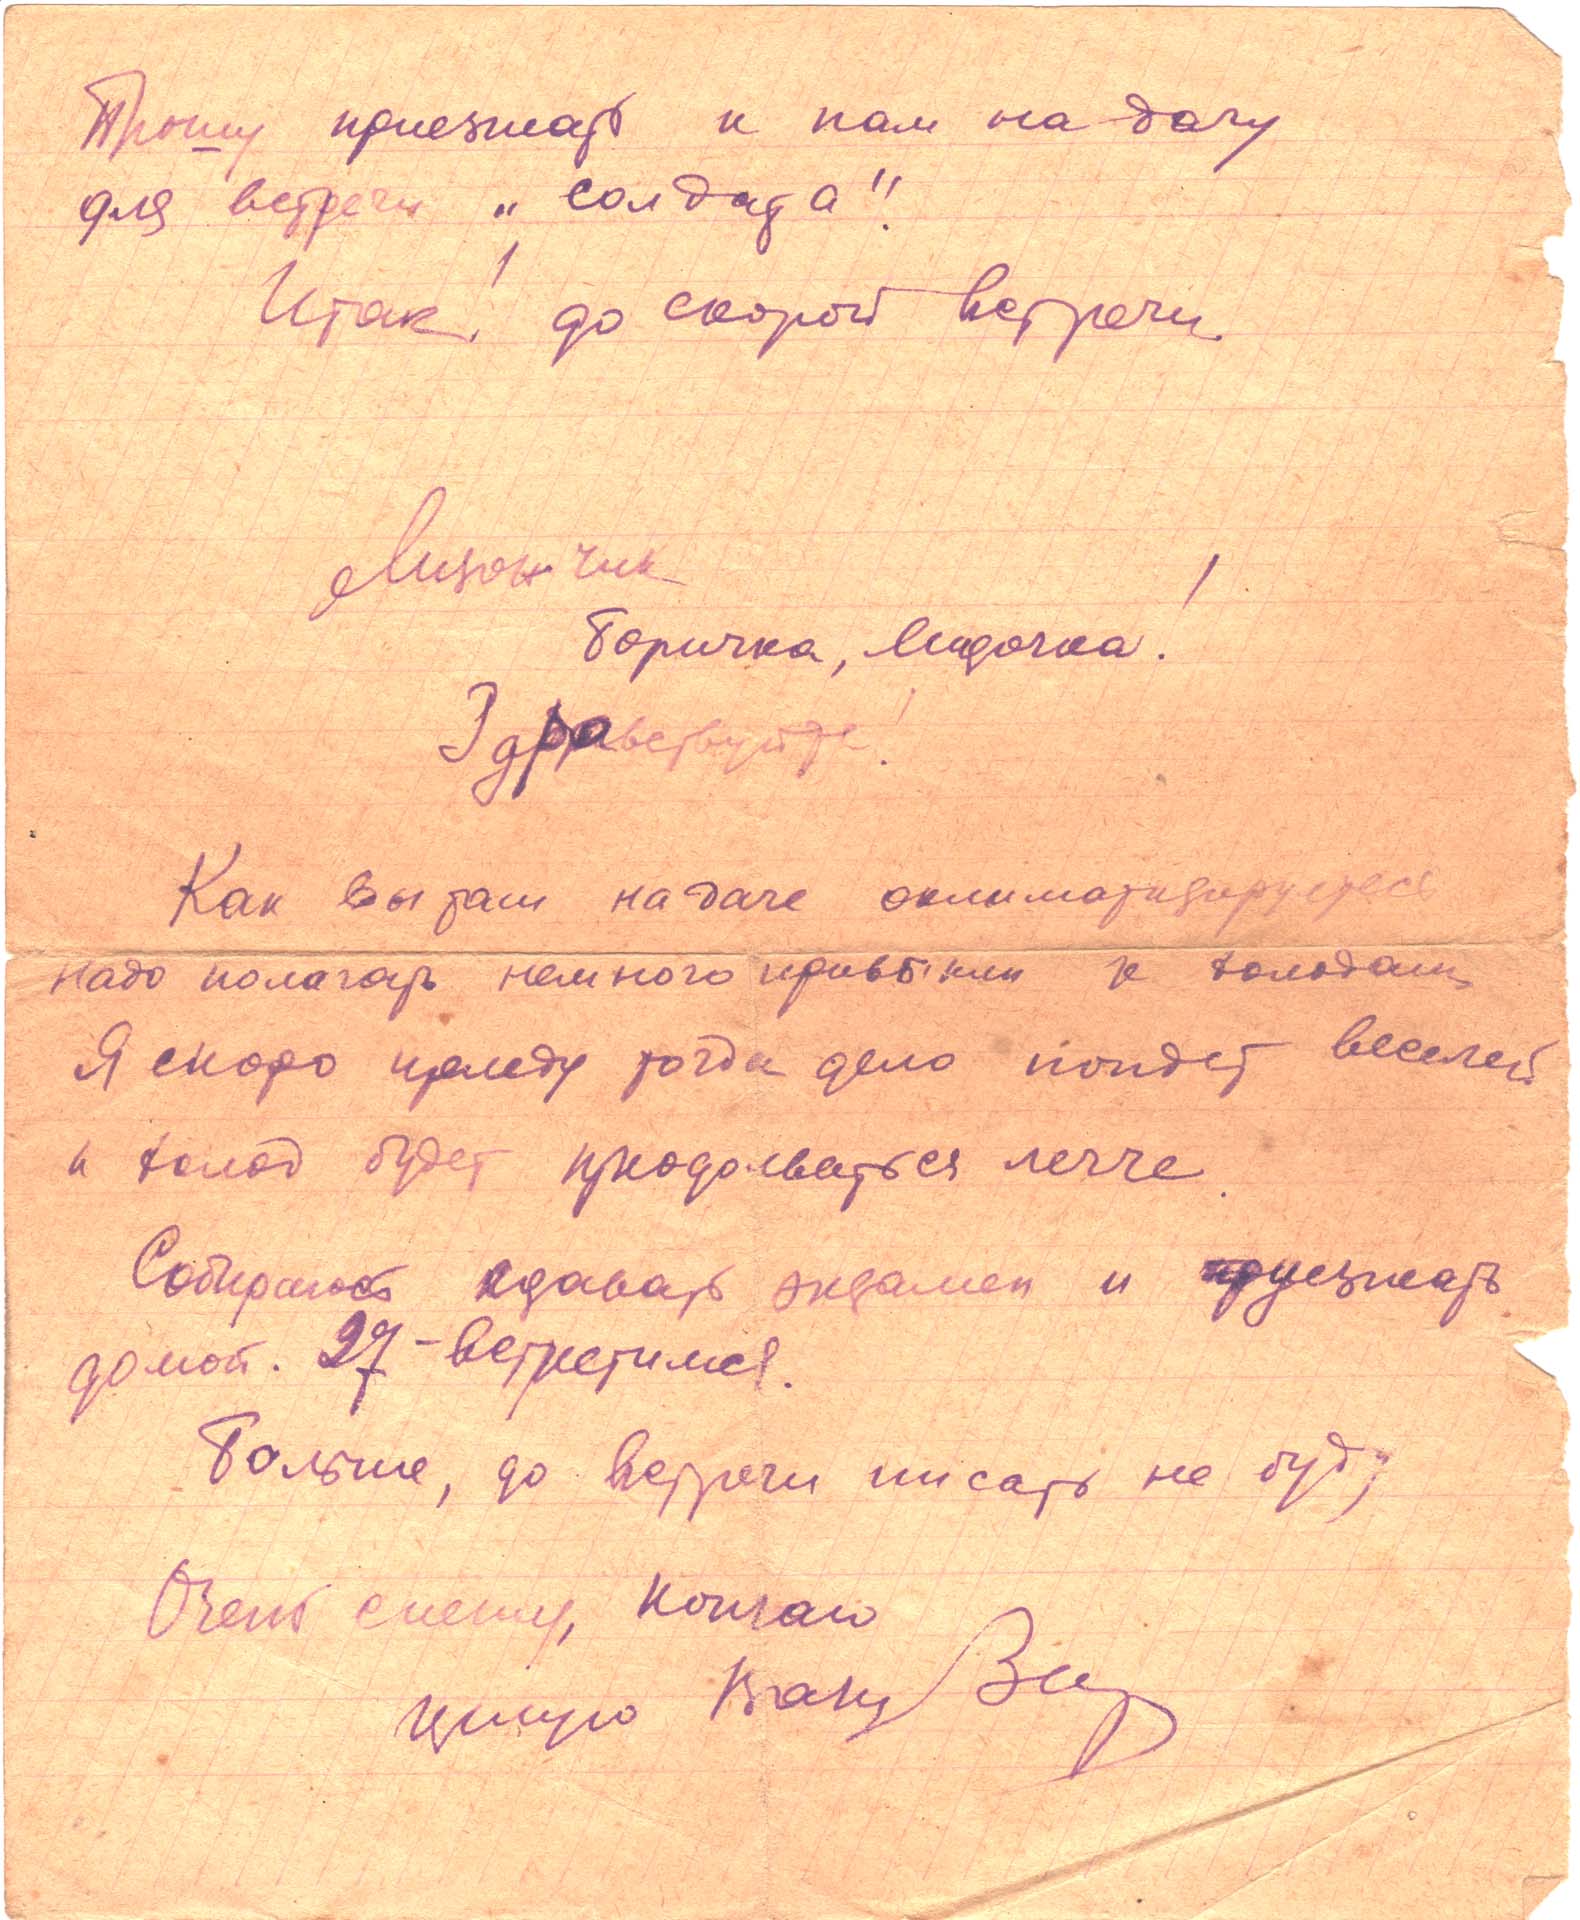 Прошу приезжать к нам на дачу
для встречи „солдата"!
Итак! до скорой встречи.
Лизончик
Боричка, Лидочка!
Здравствуйте!
Как вы там на даче оклиматизируетесь
надо полагать немного привыкли к холодам
Я скоро приеду тогда дело пойдет веселей
и холод будет преодолеваться легче.
Собираюсь сдавать экзамен и приезжать
домой. 27 - встретимся.
Больше, до встречи писать не буду
Очень спешу, кончаю
целую Ваш